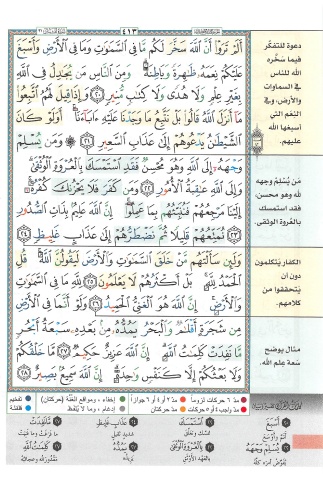 ٤١٣
أَلَمْ تَرَوْا۟ أَنَّ ٱللَّهَ سَخَّرَ لَكُم مَّا فِى ٱلسَّمَٰوَٰتِ وَمَا فِى ٱلْأَرْضِ وَأَسْبَغَ
عَلَيْكُمْ نِعَمَهُۥ ظَٰهِرَةً وَبَاطِنَةً ۗ وَمِنَ ٱلنَّاسِ مَن يُجَٰدِلُ فِى ٱللَّهِ
بِغَيْرِ عِلْمٍ وَلَا هُدًى وَلَا كِتَٰبٍ مُّنِيرٍ ٢٠ وَإِذَا قِيلَ لَهُمُ ٱتَّبِعُوا۟
مَآ أَنزَلَ ٱللَّهُ قَالُوا۟ بَلْ نَتَّبِعُ مَا وَجَدْنَا عَلَيْهِ ءَابَآءَنَآ ۚ أَوَلَوْ كَانَ
ٱلشَّيْطَٰنُ يَدْعُوهُمْ إِلَىٰ عَذَابِ ٱلسَّعِيرِ ٢١ وَمَن يُسْلِمْ
وَجْهَهُۥٓ إِلَى ٱللَّهِ وَهُوَ مُحْسِنٌ فَقَدِ ٱسْتَمْسَكَ بِٱلْعُرْوَةِ ٱلْوُثْقَىٰ ۗ
وَإِلَى ٱللَّهِ عَٰقِبَةُ ٱلْأُمُورِ ٢٢ وَمَن كَفَرَ فَلَا يَحْزُنكَ كُفْرُهُۥٓ ۚ
إِلَيْنَا مَرْجِعُهُمْ فَنُنَبِّئُهُم بِمَا عَمِلُوٓا۟ ۚ إِنَّ ٱللَّهَ عَلِيمٌۢ بِذَاتِ ٱلصُّدُورِ
٢٣ نُمَتِّعُهُمْ قَلِيلًا ثُمَّ نَضْطَرُّهُمْ إِلَىٰ عَذَابٍ غَلِيظٍ ٢٤
وَلَئِن سَأَلْتَهُم مَّنْ خَلَقَ ٱلسَّمَٰوَٰتِ وَٱلْأَرْضَ لَيَقُولُنَّ ٱللَّهُ ۚ قُلِ
ٱلْحَمْدُ لِلَّهِ ۚ بَلْ أَكْثَرُهُمْ لَا يَعْلَمُونَ ٢٥ لِلَّهِ مَا فِى ٱلسَّمَٰوَٰتِ
وَٱلْأَرْضِ ۚ إِنَّ ٱللَّهَ هُوَ ٱلْغَنِىُّ ٱلْحَمِيدُ ٢٦ وَلَوْ أَنَّمَا فِى ٱلْأَرْضِ
مِن شَجَرَةٍ أَقْلَٰمٌ وَٱلْبَحْرُ يَمُدُّهُۥ مِنۢ بَعْدِهِۦ سَبْعَةُ أَبْحُرٍ
مَّا نَفِدَتْ كَلِمَٰتُ ٱللَّهِ ۗ إِنَّ ٱللَّهَ عَزِيزٌ حَكِيمٌ ٢٧ مَّا خَلْقُكُمْ
وَلَا بَعْثُكُمْ إِلَّا كَنَفْسٍ وَٰحِدَةٍ ۗ إِنَّ ٱللَّهَ سَمِيعٌۢ بَصِيرٌ ٢٨
دعوة للتفكّر
فيما سخّره
الله للناس
في السماوات
والأرض، وفي
النعم التي
أسبغها الله
عليهم.
مَن يُسْلِم وجهه
لله وهو محسن،
فقد استمسك
بالعُروة الوثقى.
الكفار يتكلمون
دون أن
يتحققوا من
كلامهم.
مثال يوضح
سَعة علم الله.
مدّ ٦ حركات لزوماً
مدّ ٢ أو ٤ أو ٦ جوازاً
إخفاء، ومواقع الغُنَّة (حركتان)
تفخيم
مدّ واجب ٤ أو ٥ حركات
مدّ حركتان
إدغام، وما لا يُلفظ
قلقلة